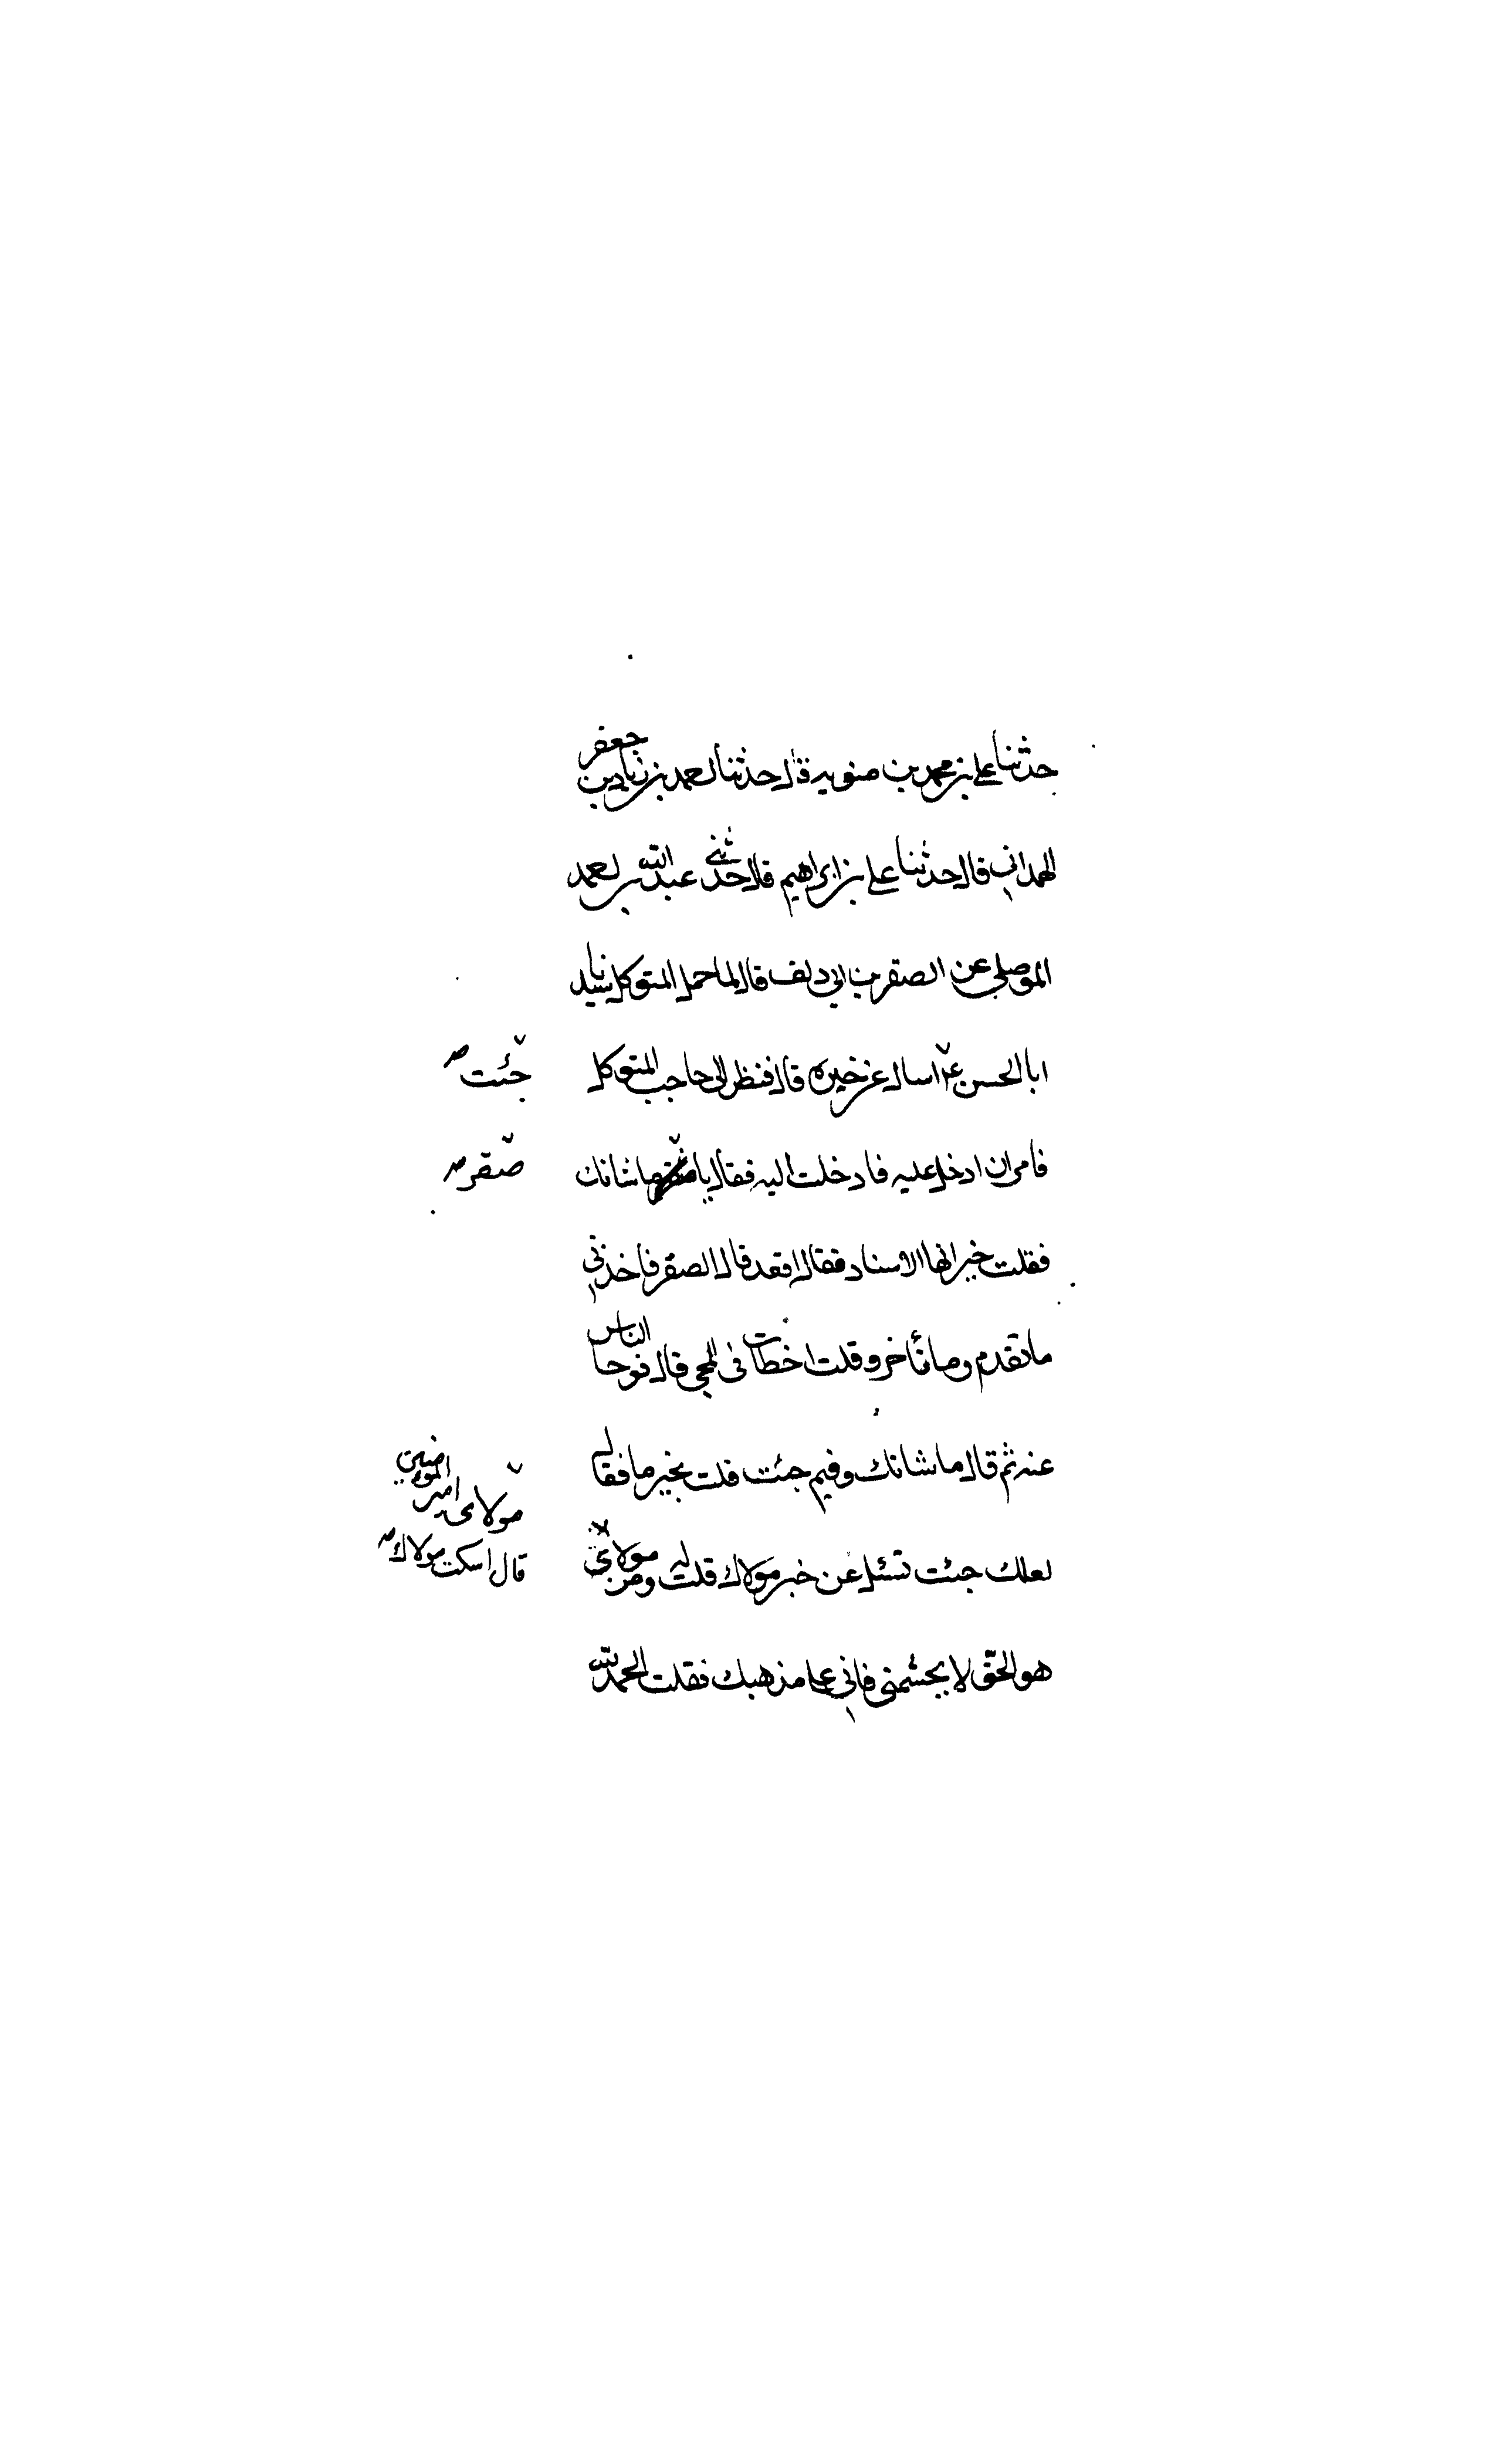 حدثنا علی بن محمد بن منویه قال حدثنا احمد بن زیاد بن جعفر
الهمدانی قال حدثنا علی بن ابراهیم قال حدثنی عبد الله بن احمد
الموصلی عن الصقر بن ابی دلف قال لما حمل المتوکل سیدنا
ابا الحسن ع اسال عن خبره قال فنظر الی حاجب المتوکل
جئت صح
فامر ان ادخل علیه فادخلت الیه فقال یا صقر ما شانك
صقر صح
فقلت خیر ایها الاستاد فقال اقعد قال الصقر فاخذنی
ما تقدم وما تأخر وقلت اخطات فی المجی قال فوحا الناس
عنه ثم قال ما شانك وفیم جئت قلت بخیر ما فقال
لعلك جئت تسئل عن خبر مولاك قلت له ومن مولای
مولای امیر المؤمنین
قال اسکت مولاك صح
هو الحق لا یحشمنی فانی علی مذهبك فقلت الحمد لله